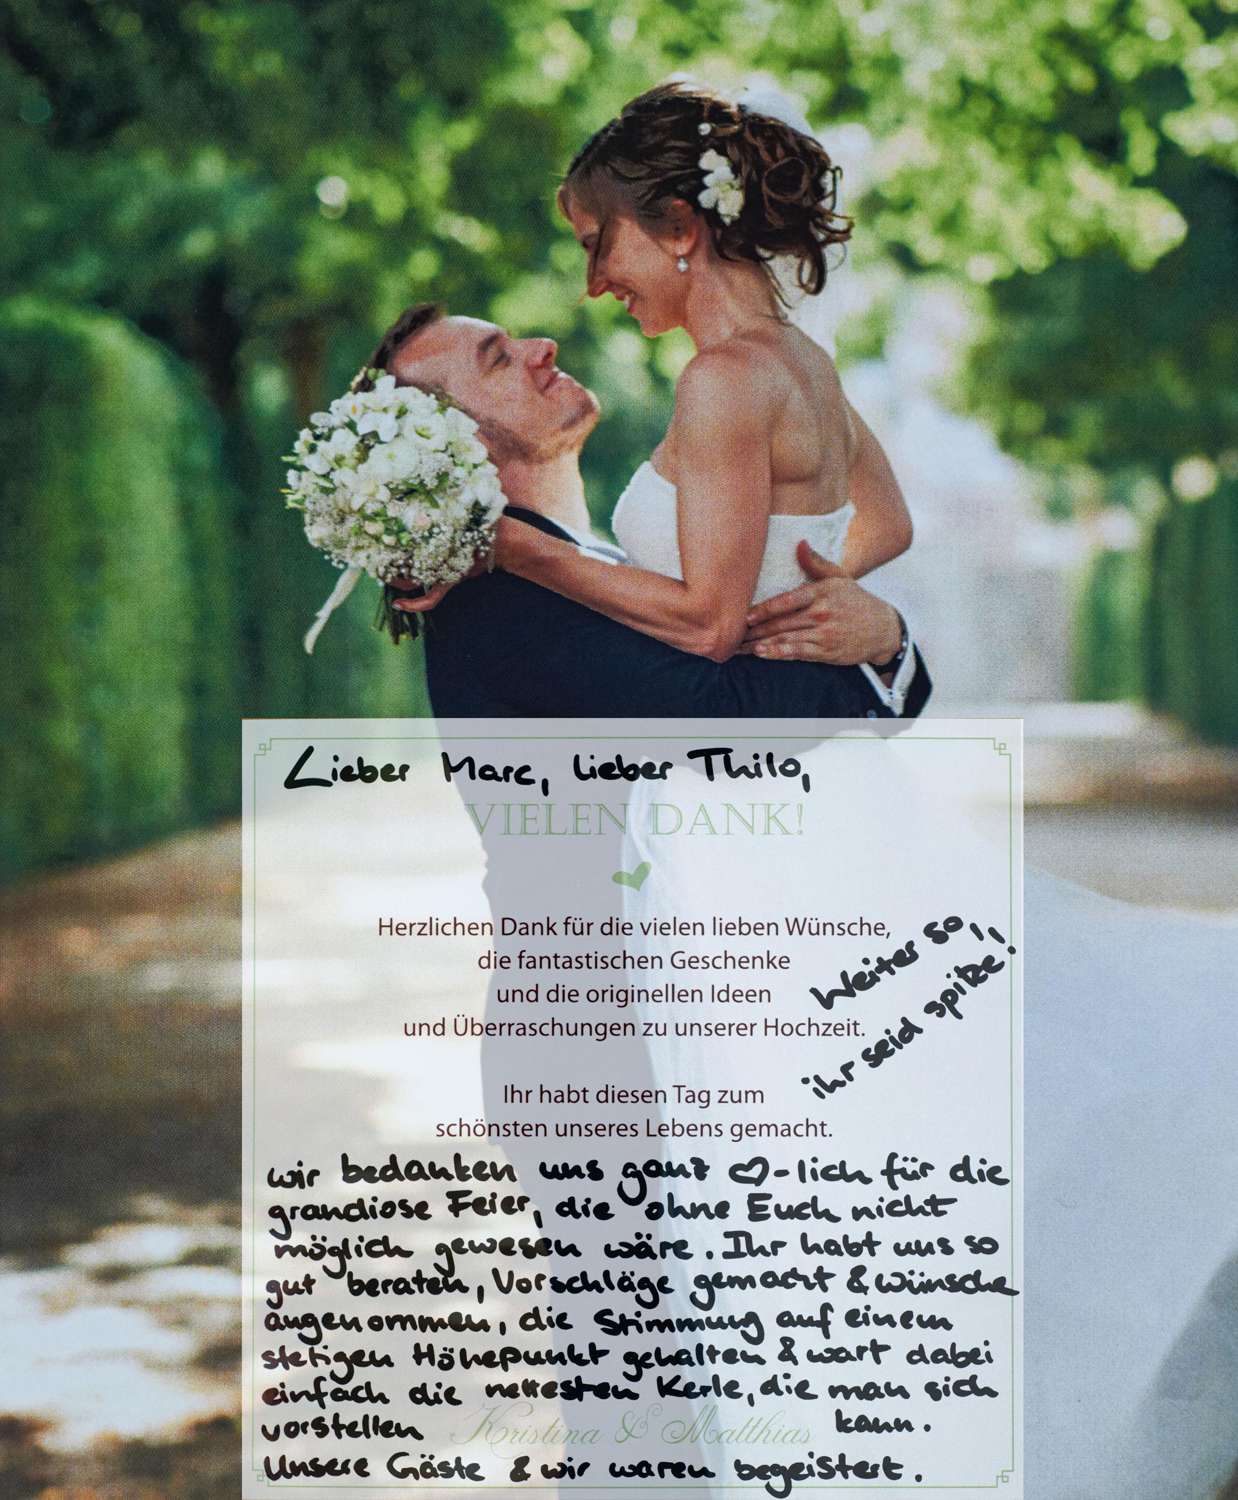 Lieber Marc, lieber Thilo,
VIELEN DANK!
Herzlichen Dank für die vielen lieben Wünsche,
die fantastischen Geschenke
und die originellen Ideen
und Überraschungen zu unserer Hochzeit.
Weiter so,,
ihr seid spitze!
Ihr habt diesen Tag zum
schönsten unseres Lebens gemacht.
wir bedanken uns ganz ♡-lich für die
grandiose Feier, die ohne Euch nicht
möglich gewesen wäre. Ihr habt uns so
gut beraten, Vorschläge gemacht & wünsche
angenommen, die Stimmung auf einem
stetigen Höhepunkt gehalten & wart dabei
einfach die nettesten Kerle, die man sich
vorstellen kann.
Kristina & Matthias
Unsere Gäste & wir waren begeistert.